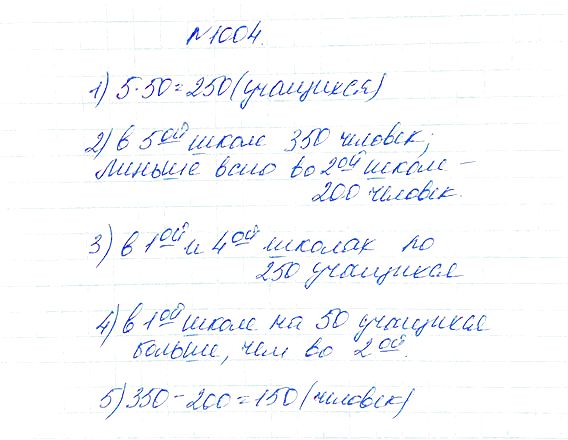 №1004.
1) 5·50=250(учащихся)
2) в 5ой школе 350 человек;
меньше всего во 2ой школе –
200 человек.
3) в 1ой и 4ой школах по
250 учащихся
4) в 1ой школе на 50 учащихся
больше, чем во 2ой.
5) 350–200=150(человек)